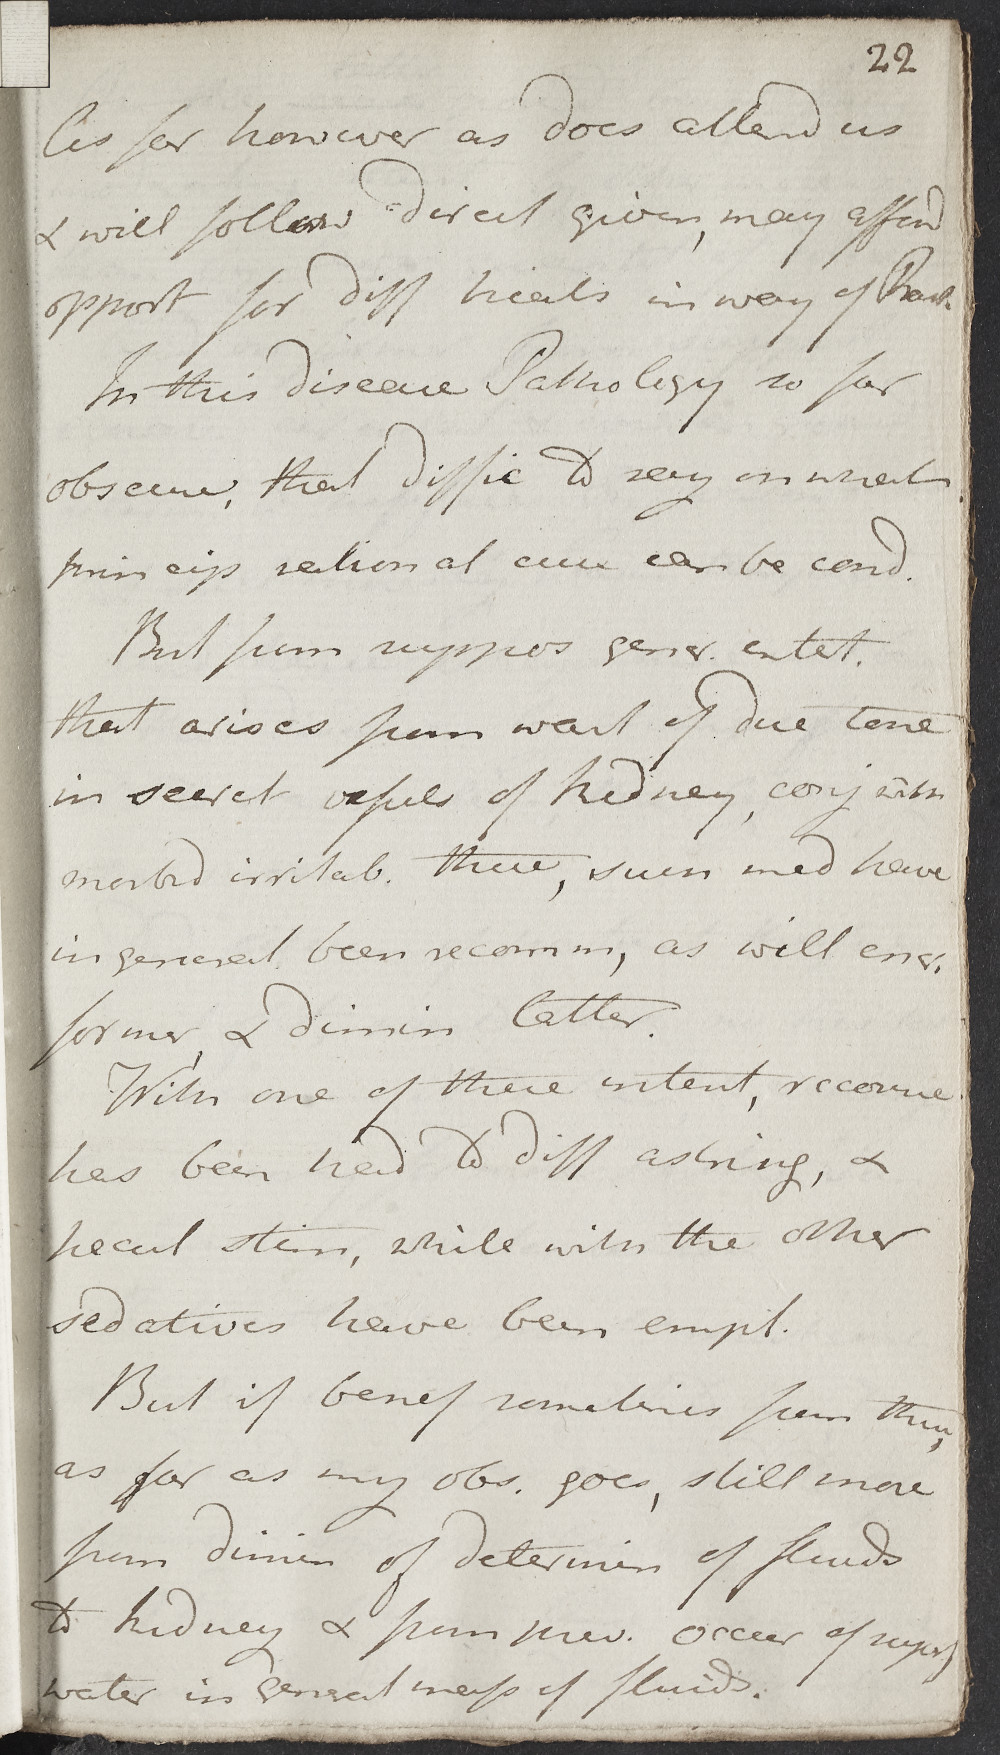 22
As far however as does attend us
& will follow direct given, may afford
opport for diff trials in way of Pract.
In this disease Pathology so far
obscure, that diffic to say on what
princip rational cure can be cond.
But from suppos gener. entet.
that arises from want of due tone
in secret vessels of kidney, conj with
morbid irritab. these, such med have
in general been recomm, as will incr.
former, & dimin latter.
With one of these intent, recourse
has been had to diff astring, &
stim, while with the other
sedatives have been empl.
But if benef sometimes from these,
as far as my obs. goes, still more
from dimin of determin of fluids
to kidney & from prev. occur of superf
water in general mass of fluids.